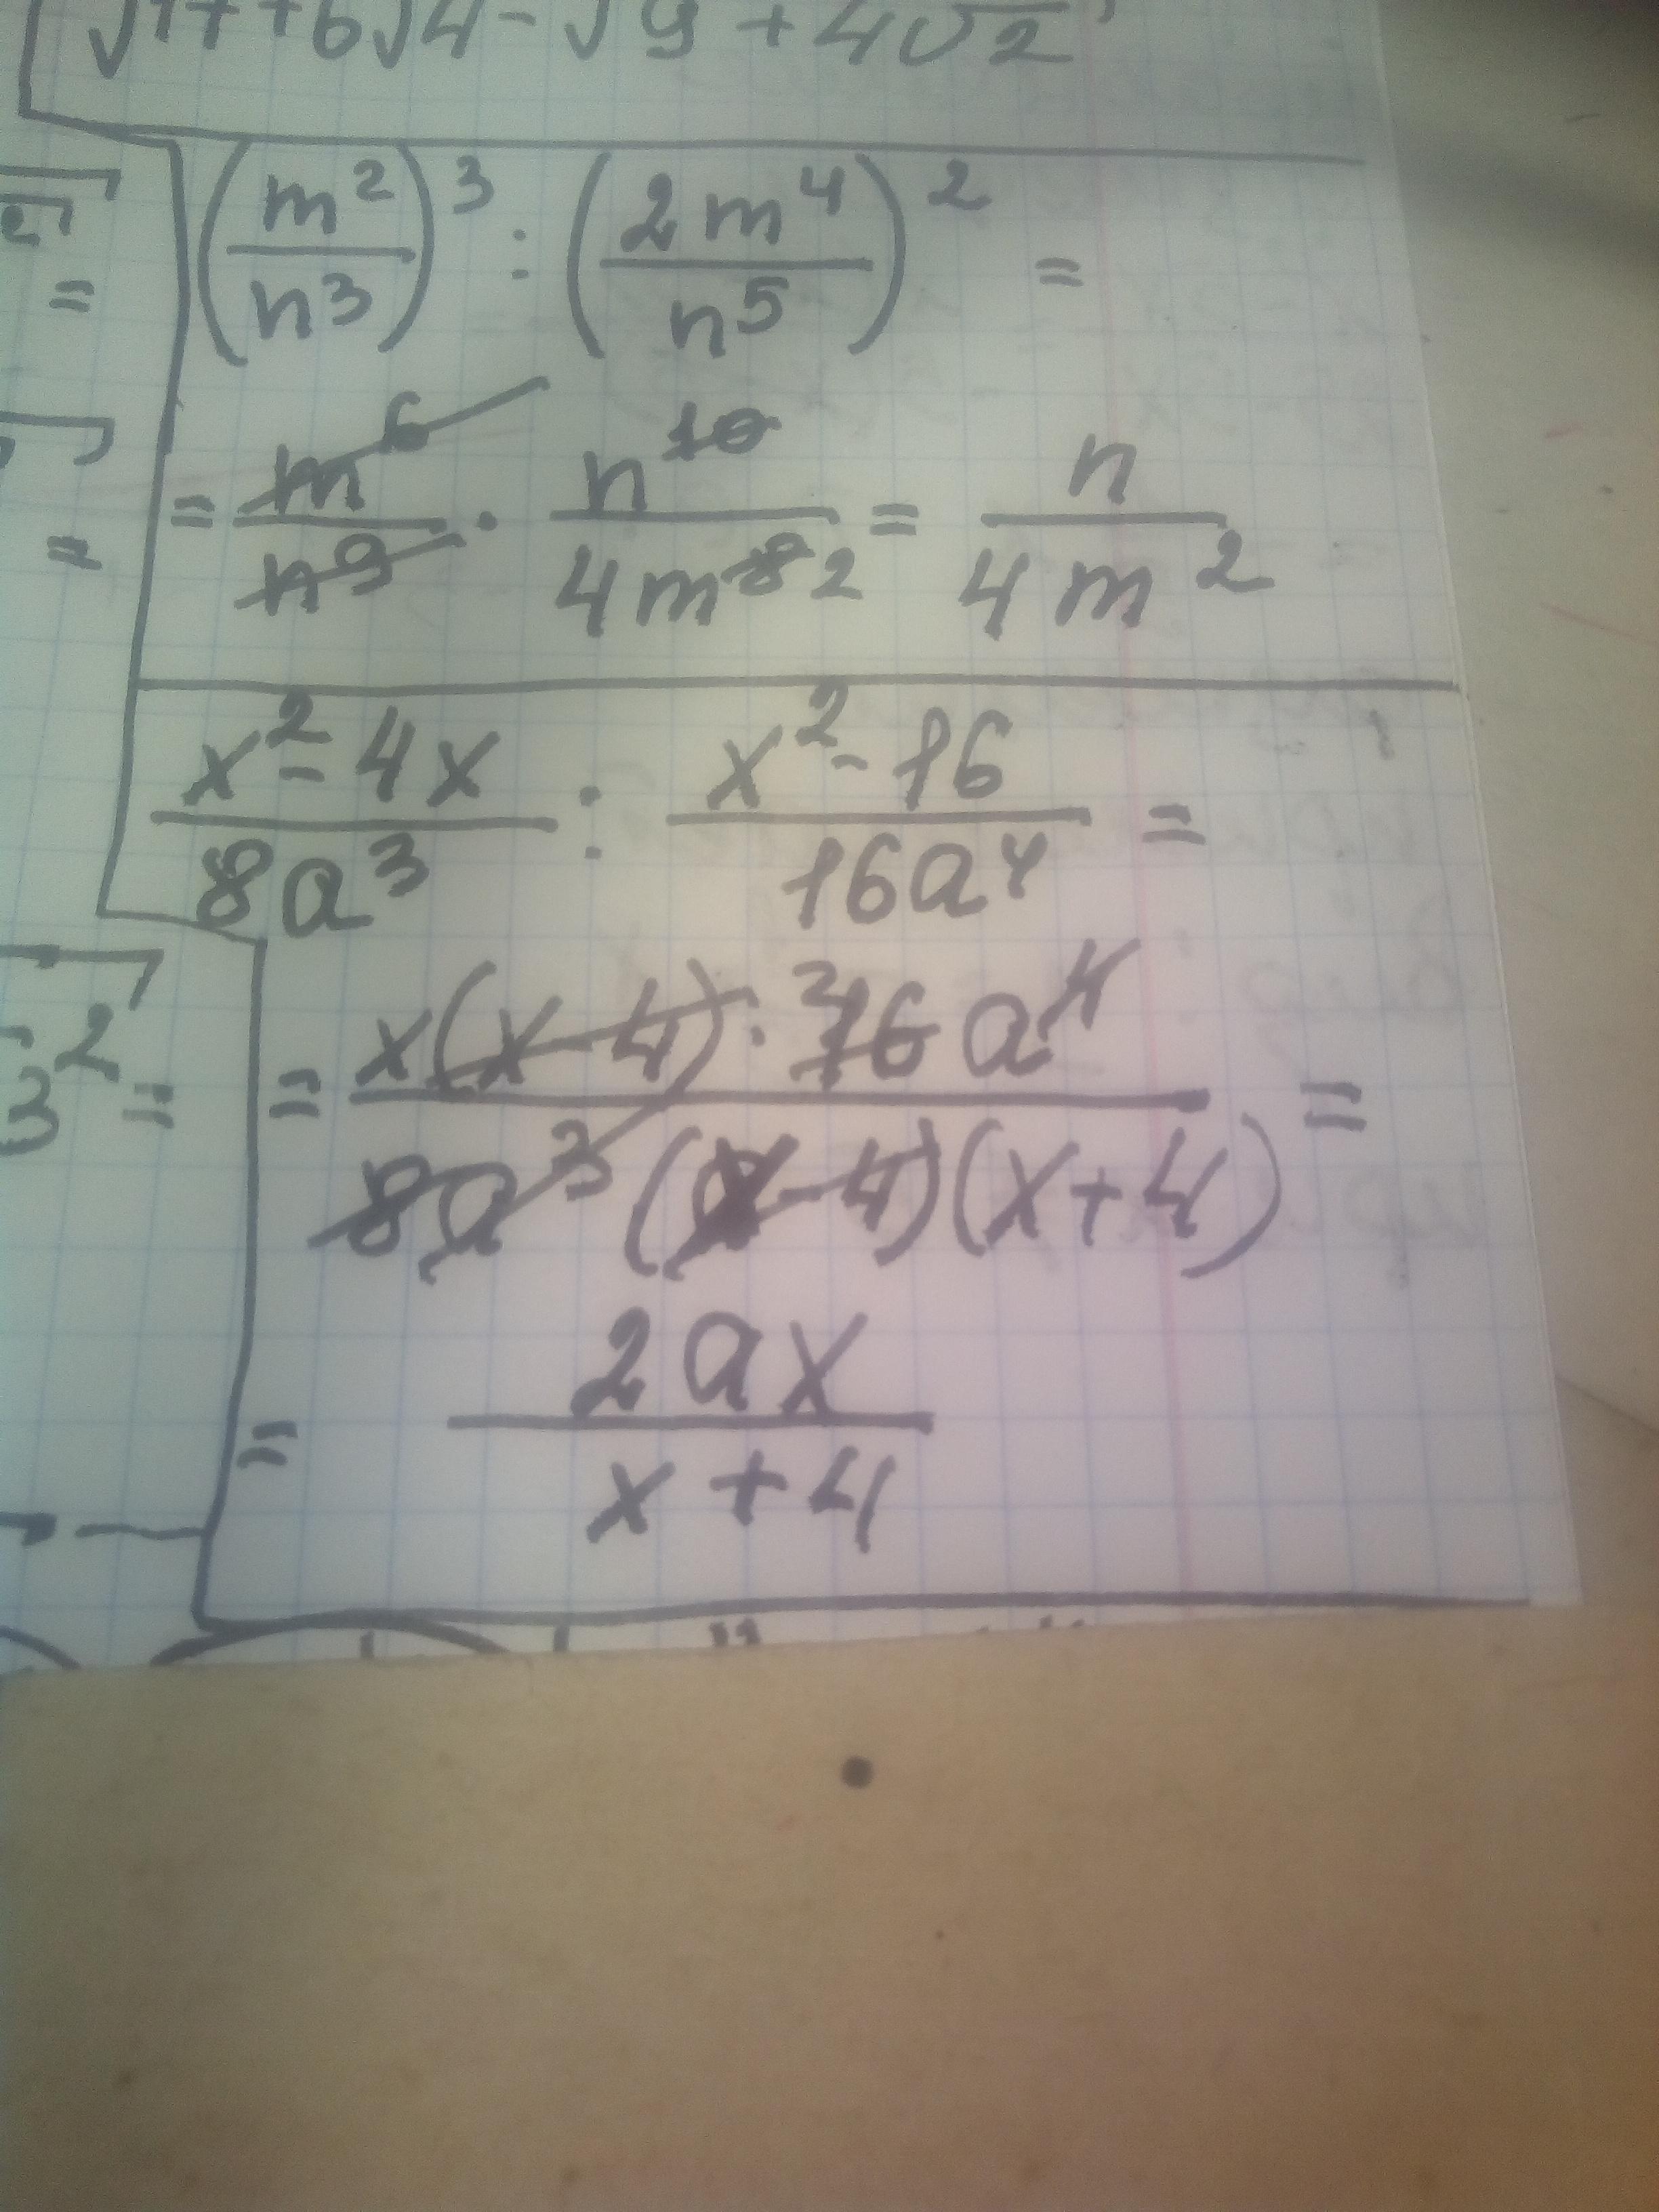 +6√4-√9+4√2
(m²/n³)³ : (2m⁴/n⁵)² =
= m⁶/n⁹ · n¹⁰/4m⁸ 2 = n/4m²
=
=
x²-4x/8a³ : x²-16/16a⁴ =
= x(x-4)·2 16a⁴/8a³(x-4)(x+4) =
3² =
= 2ax/x+4